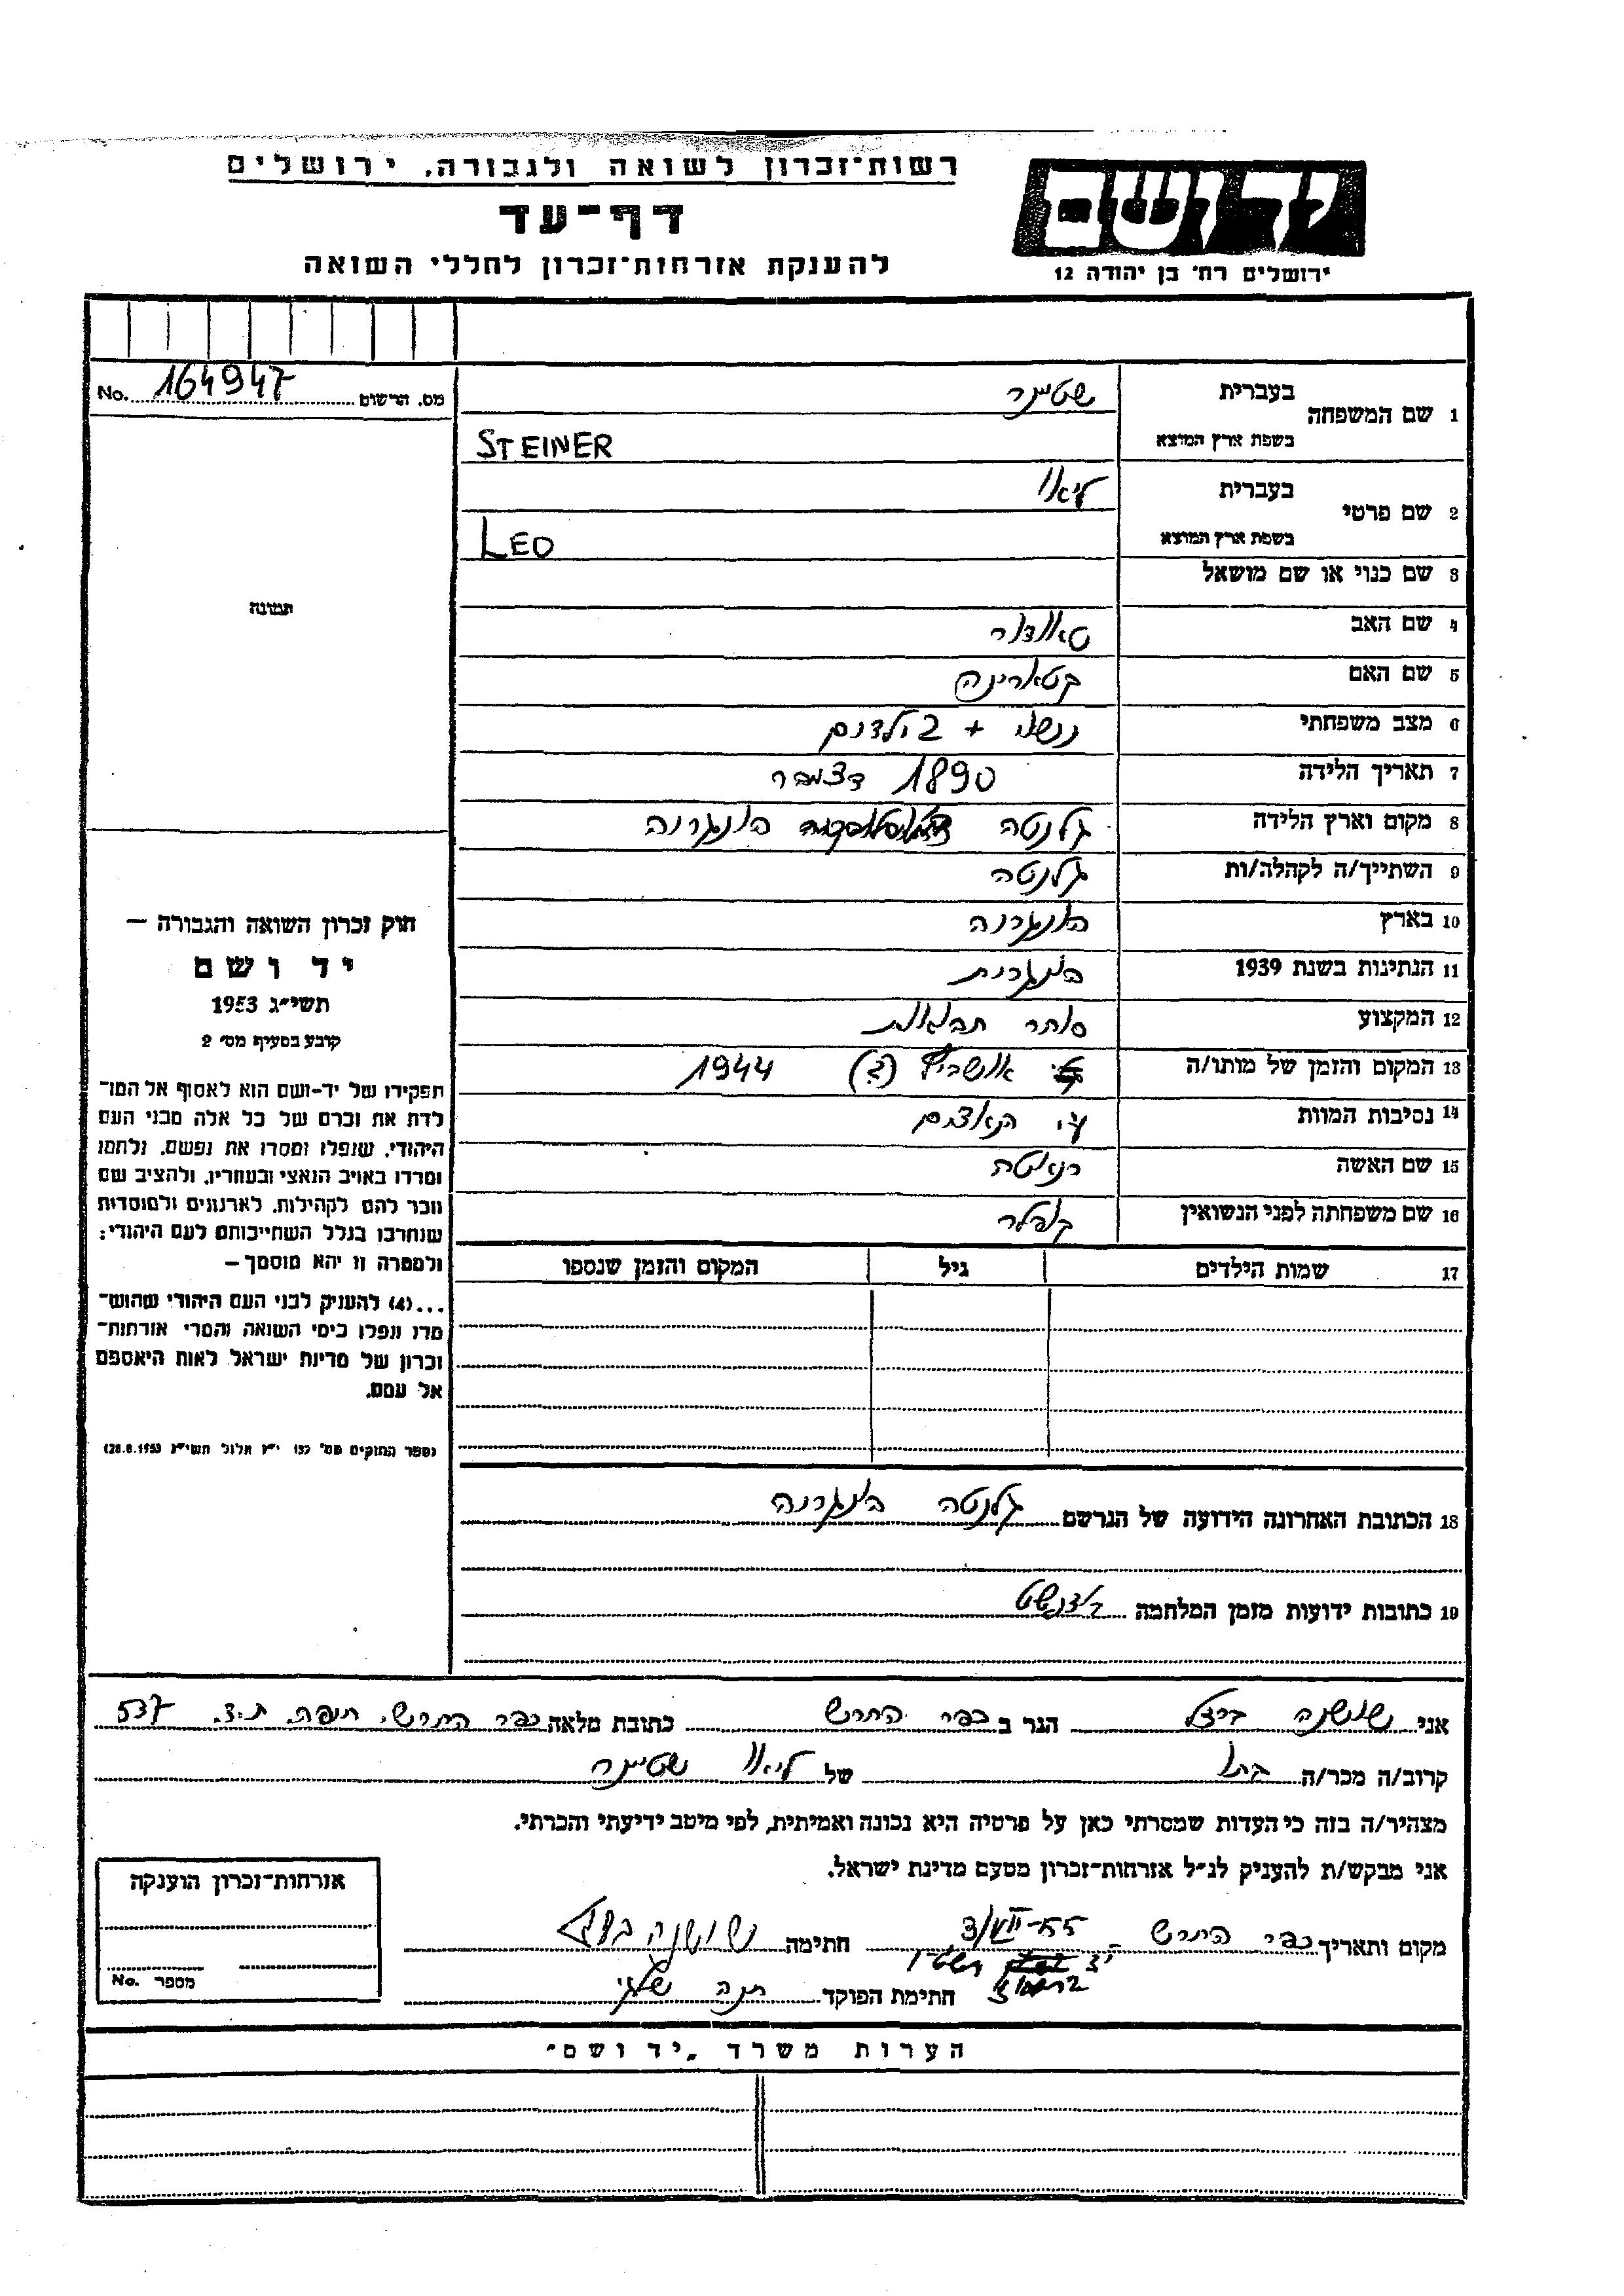 רשות־זכרון לשואה ולגבורה, ירושלים
דף־עד
להענקת אזרחות־זכרון לחללי השואה
יד ושם
ירושלים רח' בן יהודה 12
מס. הרשום 164947 No.
1 שם המשפחה
בעברית שטינר
בשפת ארץ המוצא STEINER
2 שם פרטי
בעברית ליאו
בשפת ארץ המוצא LEO
3 שם כנוי או שם מושאל
4 שם האב
5 שם האם קטארינה
6 מצב משפחתי נשוי + 2 ילדים
7 תאריך הלידה 1890 דצמבר
8 מקום וארץ הלידה גלנטה הונגריה
9 השתייך/ה לקהלה/ות גלנטה
10 בארץ הונגריה
11 הנתינות בשנת 1939 הונגרית
12 המקצוע סוחר תבואות
13 המקום והזמן של מותו/ה אושויץ (?) 1944
14 נסיבות המוות ע"י הנאצים
15 שם האשה
16 שם משפחתה לפני הנשואין
17 שמות הילדים גיל המקום והזמן שנספו
18 הכתובת האחרונה הידועה של הנרשם גלנטה הונגריה
19 כתובות ידועות מזמן המלחמה בודפשט
תמונה
חוק זכרון השואה והגבורה –
יד ושם
תשי"ג 1953
קובע בסעיף מס' 2
תפקידו של יד-ושם הוא לאסוף אל המו־
לדת את זכרם של כל אלה מבני העם
היהודי, שנפלו ומסרו את נפשם, נלחמו
ומרדו באויב הנאצי ובעוזריו, ולהציב שם
וזכר להם לקהילות, לארגונים ולמוסדות
שנחרבו בגלל השתייכותם לעם היהודי;
ולמטרה זו יהא מוסמך –
...(4) להעניק לבני העם היהודי שהוש־
מדו ונפלו בימי השואה והמרי אזרחות־
זכרון של מדינת ישראל לאות היאספם
אל עמם.
(ספר החוקים מס' 132 י"ז אלול תשי"ג 28.8.1953)
אני שושנה ברצל הגר ב כפר החרש כתובת מלאה כפר החרש, חיפה ת.ד. 537
קרוב/ה מכר/ה בתו של ליאו שטינר
מצהיר/ה בזה כי העדות שמסרתי כאן על פרטיה היא נכונה ואמיתית, לפי מיטב ידיעתי והכרתי.
אני מבקש/ת להעניק לנ"ל אזרחות־זכרון מטעם מדינת ישראל.
מקום ותאריך כפר החרש 3/VII-55 חתימה שושנה ברצל
חתימת הפוקד חנה
אזרחות־זכרון הוענקה
מספר No.
הערות משרד "יד ושם"